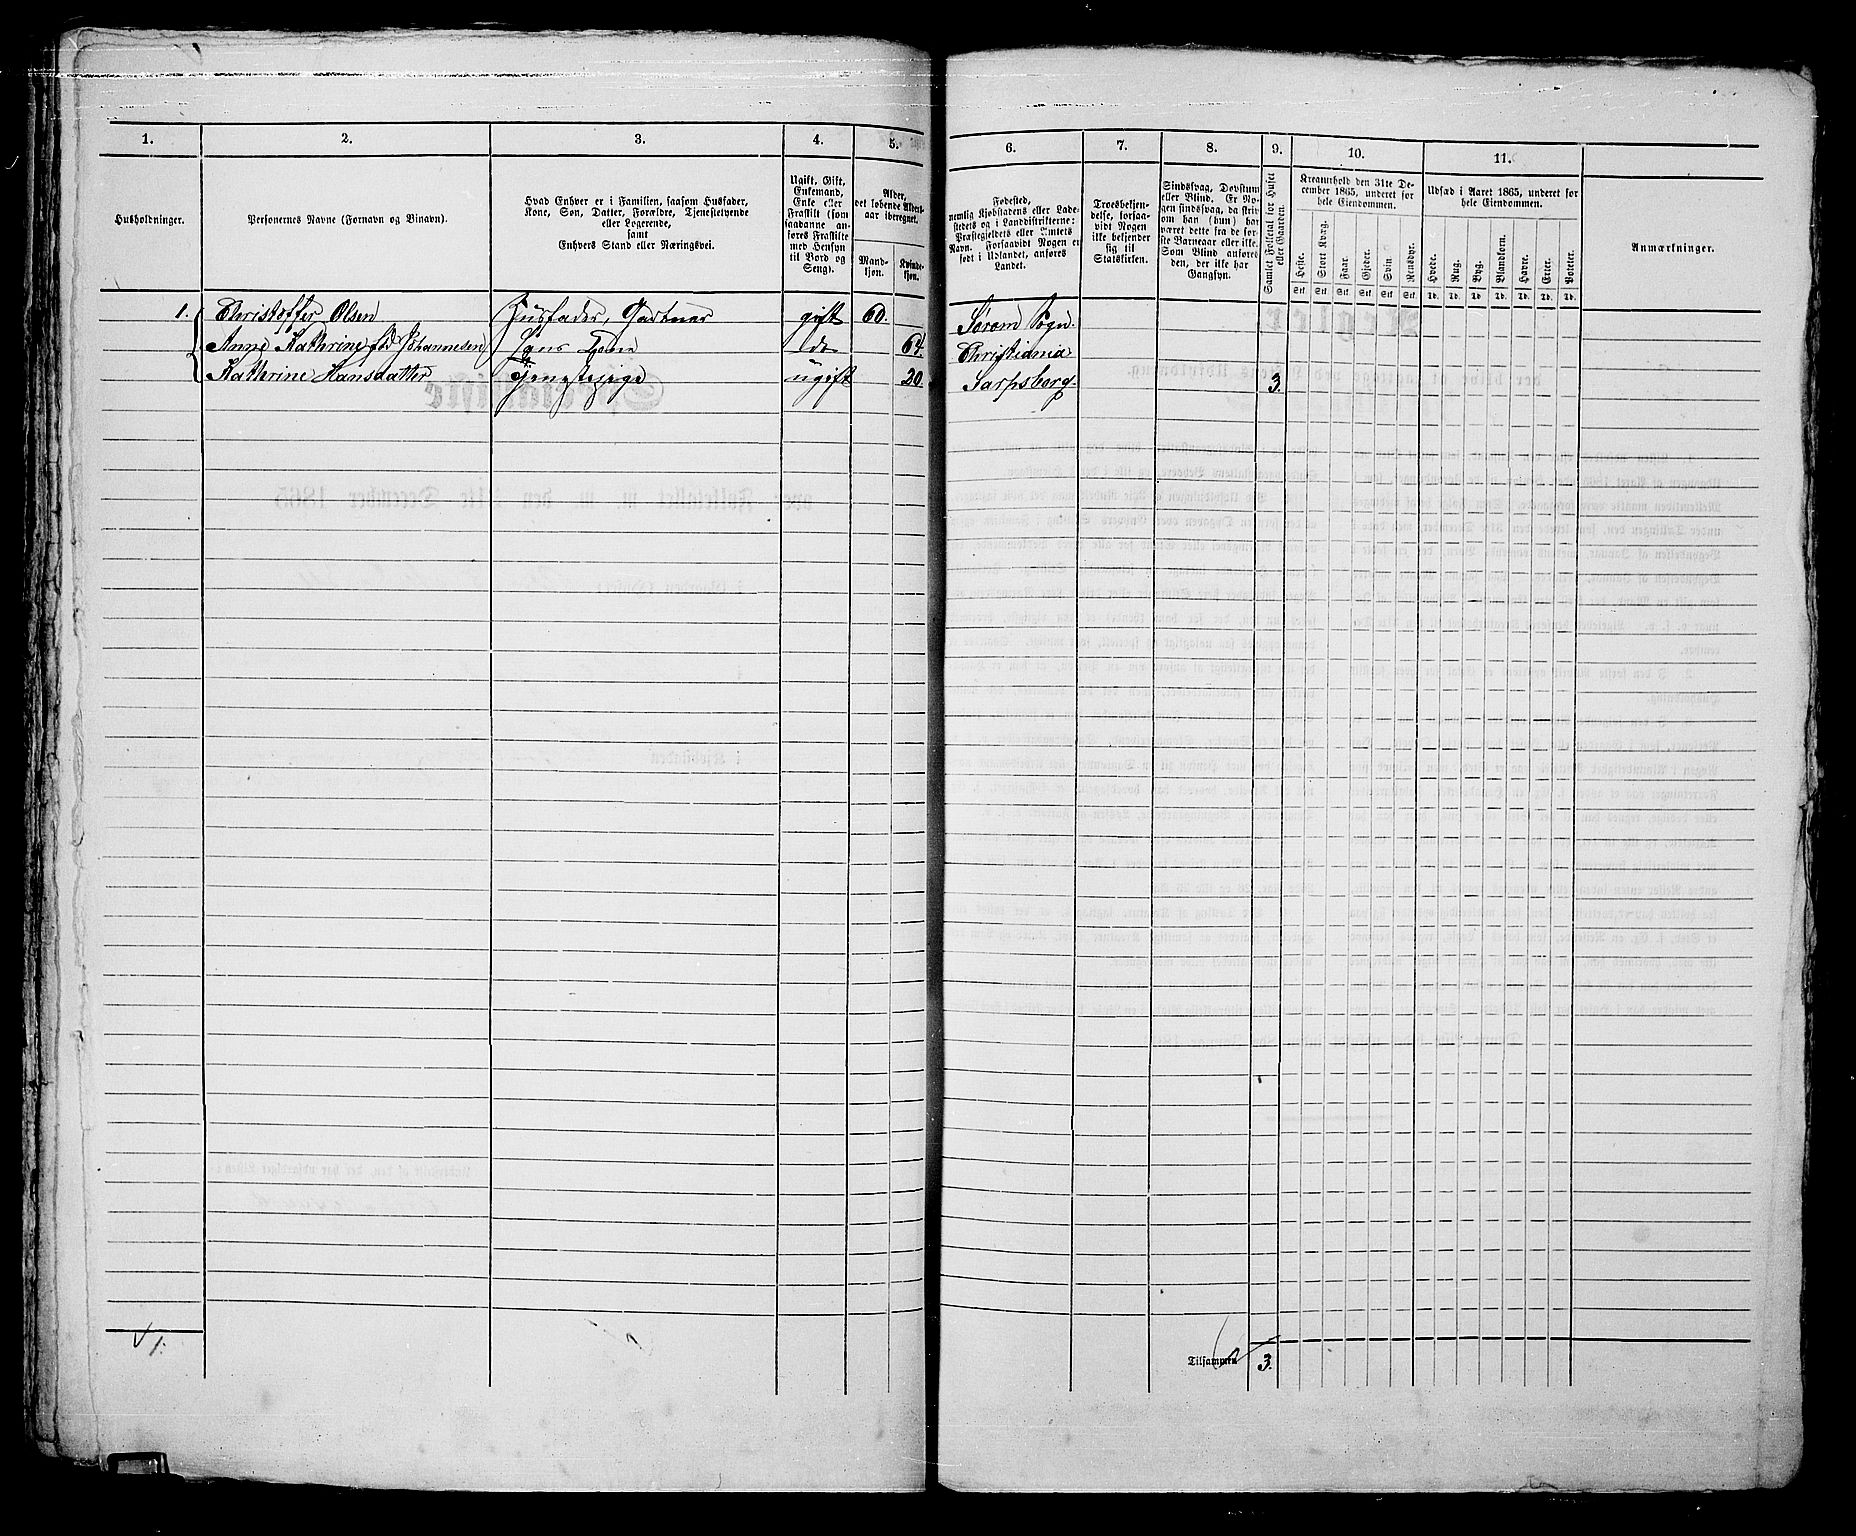 1. 2. 3. 4. 5. 6. 7. 8. 9. 10. 11.
Husholdninger.
Personernes Navne (Fornavn og Binavn).
Hvad Enhver er i Familien, saasom Husfader,
Kone, Søn, Datter, Forældre, Tjenestetyende
eller Logerende,
samt
Enhvers Stand eller Næringsvei.
Ugift, Gift,
Enkemand,
Enke eller
Fraskilt (som
saadanne an-
føres Fraskilte
med Hensyn
til Bord og
Seng).
Alder,
det løbende Alders-
aar iberegnet.
Mand-
kjøn.
Kvinde-
kjøn.
Fødested,
nemlig Kjøbstadens eller Lade-
stedets og i Landdistrikterne:
Præstegjeldets eller Amtets
Navn. Forsaavidt Nogen er
født i Udlandet, anføres
Landet.
Troesbekjen-
delse, forsaa-
vidt Nogen
ikke bekjender
sig til
Statskirken.
Sindssvag, Døvstum
eller Blind. Er No-
gen sindssvag, da skriv
om han (hun) har
været dette fra de før-
ste Barneaar eller ikke.
Som Blind anføres
den, der ikke har
Gangsyn.
Samlet Folketal for Huset
eller Gaarden.
Kreaturhold den 31te De-
cember 1865, underet for
hele Eiendommen.
Heste. Stort Kvæg. Faar. Gjeder. Svin. Rensdyr.
Stk. Stk. Stk. Stk. Stk. Stk.
Udsæd i Aaret 1865, underet for
hele Eiendommen.
Hvede. Rug. Byg. Blandkorn. Havre. Erter. Poteter.
Td. Td. Td. Td. Td. Td. Td.
Anmærkninger.
1. Christoffer Olsen Husfader, Gartner gift 60. Sørum Sogn.
Anne Kathrine fød Johannesen Hans Kone do 64. Christiania
Kathrine Hansdatter Tjenestepige ugift 20. Sarpsborg. 3.
1.
Tilsammen 3.